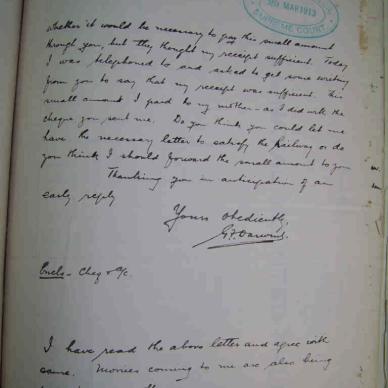 31 MAR 1913
SUPREME COURT
whether it would be necessary to pay this small amount
through you, but they thought my receipt sufficient. Today
I was telephoned to and asked to get some writing
from you to say that my receipt was sufficient. This
small amount I paid to my mother - as I did with the
cheque you sent me. Do you think you could let me
have the necessary letter to satisfy the Railway or do
you think I should forward the small amount to you
Thanking you in anticipation of an
early reply
Yours obediently,
Encls - Cheq & c/c.
I have read the above letter and agree with
same. Monies coming to me are also being